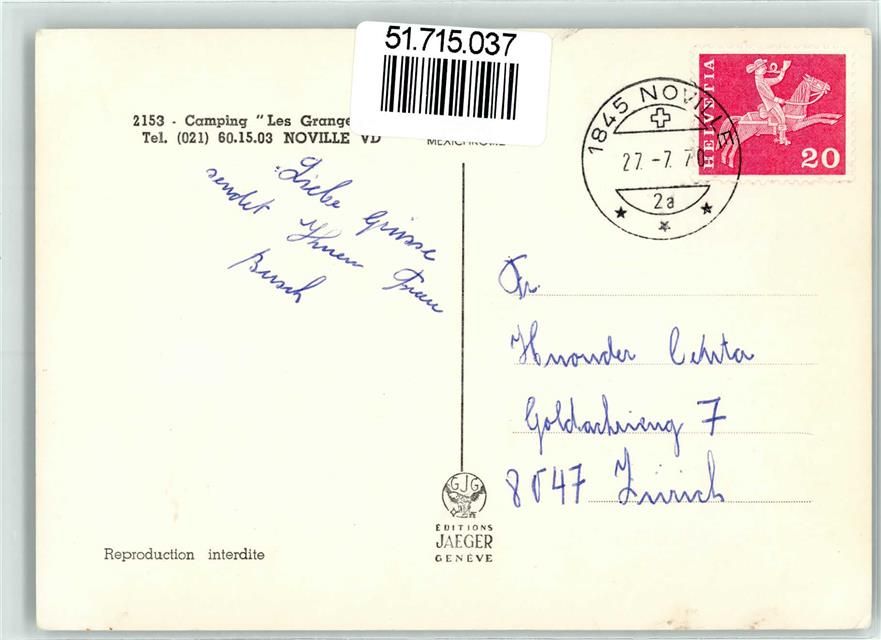 51.715.037
2153 - Camping "Les Grange
Tel. (021) 60.15.03 NOVILLE VD
MEXICHROME
1845 NOVILLE
27.-7.70
2a
HELVETIA
20
Liebe Grüsse
sendet Ihnen Frau
Busch
Fr.
Huonder
Goldackerweg 7
8047 Zürich
GJG
ÉDITIONS
JAEGER
GENÈVE
Reproduction interdite